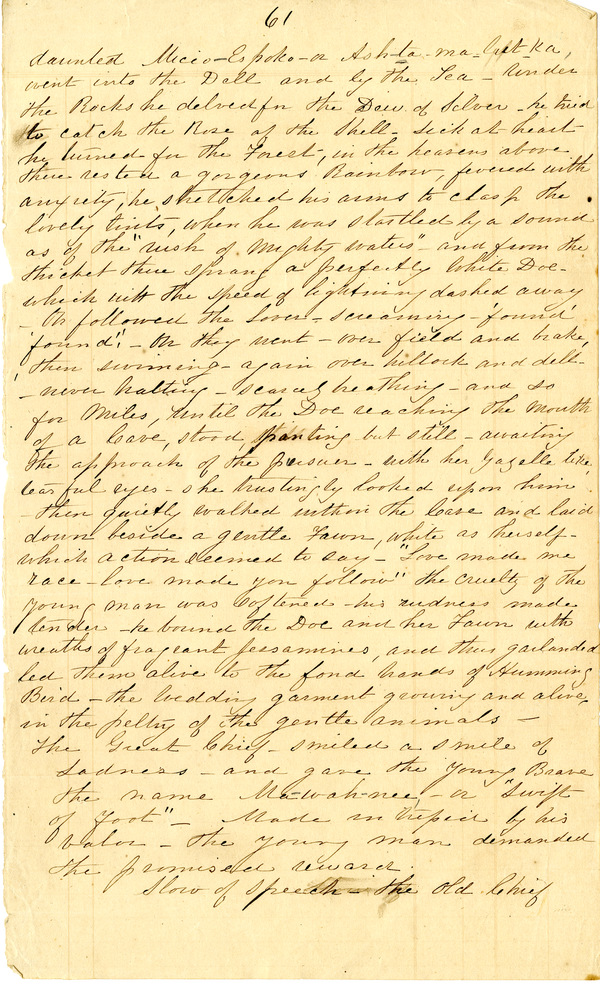 61
daunted Micco-Espoko-or Ash-ta-ma-
went into the Dell and by the Sea - Under
the Rocks he delved for the Dew of Silver - he tried
to catch the Rose of the Shell - Sick at heart
he turned for the Forest, in the heavens above
there rested a gorgeous Rainbow, fevered with
anxiety, he stretched his arms to clasp the
lovely tints, when he was startled by a sound
as of the "rush of Mighty waters" - and from the
thicket there sprang a perfectly White Doe -
which with the speed of lightning dashed away
- On followed the Lover - screaming - 'found'
'found'! - On they went - over field and brake,
then swiming - again over hillock and dell -
- never halting - scarce breathing - and so
for Miles, until the Doe reaching the mouth
of a Cave, stood panting but still - awaiting
the approach of the pursuer - with her Gazelle like,
tearful eyes - she trustingly looked upon him
- then quietly walked within the Cave and laid
down beside a gentle Fawn, white as herself -
which action seemed to say - "Love made me
race - love made you follow" the cruelty of the
young man was softened - his rudness made
tender - he bound the Doe and her Fawn with
wreaths of fragrant jessamines, and thus garlanded
led them alive to the fond hands of Humming
Bird - the Wedding garment growing and alive,
in the peltry of the gentle animals -
The Great Chief - smiled a smile of
Sadness - and gave the Young Brave
the name Ma-wah-nee, - or "Swift
of Foot" - Made intrepid by his
Valor - the young man demanded
the promised reward.
Slow of speech - the Old Chief